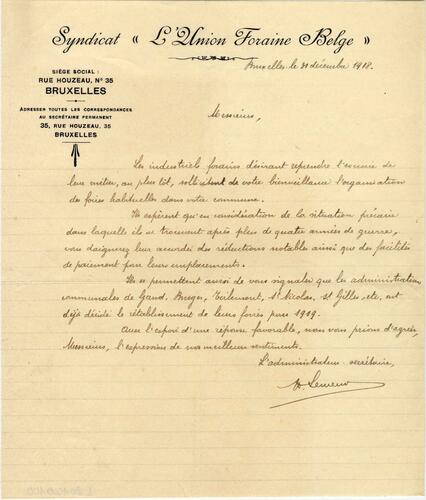 Syndicat « L'Union Foraine Belge »
Bruxelles, le 31 décembre 1918.
SIÈGE SOCIAL :
RUE HOUZEAU, N° 35
BRUXELLES
ADRESSER TOUTES LES CORRESPONDANCES
AU SECRÉTAIRE PERMANENT
35, RUE HOUZEAU, 35
BRUXELLES
Messieurs,
Les industriels forains désirant reprendre l'exercice de
leur métier, au plus tôt, sollicitent de votre bienveillance l'organisation
des foires habituelles dans votre commune.
Ils espèrent qu'en considération de la situation précaire
dans laquelle ils se trouvent après plus de quatre années de guerre,
vous daignerez leur accorder des réductions notables ainsi que des facilités
de paiement pour leurs emplacements.
Ils se permettent aussi de vous signaler que les administrations
communales de Gand, Bruges, Tirlemont, St Nicolas, St Gilles, etc, ont
déjà décidé le rétablissement de leurs foires pour 1919.
Avec l'espoir d'une réponse favorable, nous vous prions d'agréer,
Messieurs, l'expression de nos meilleurs sentiments.
L'administrateur-secrétaire,